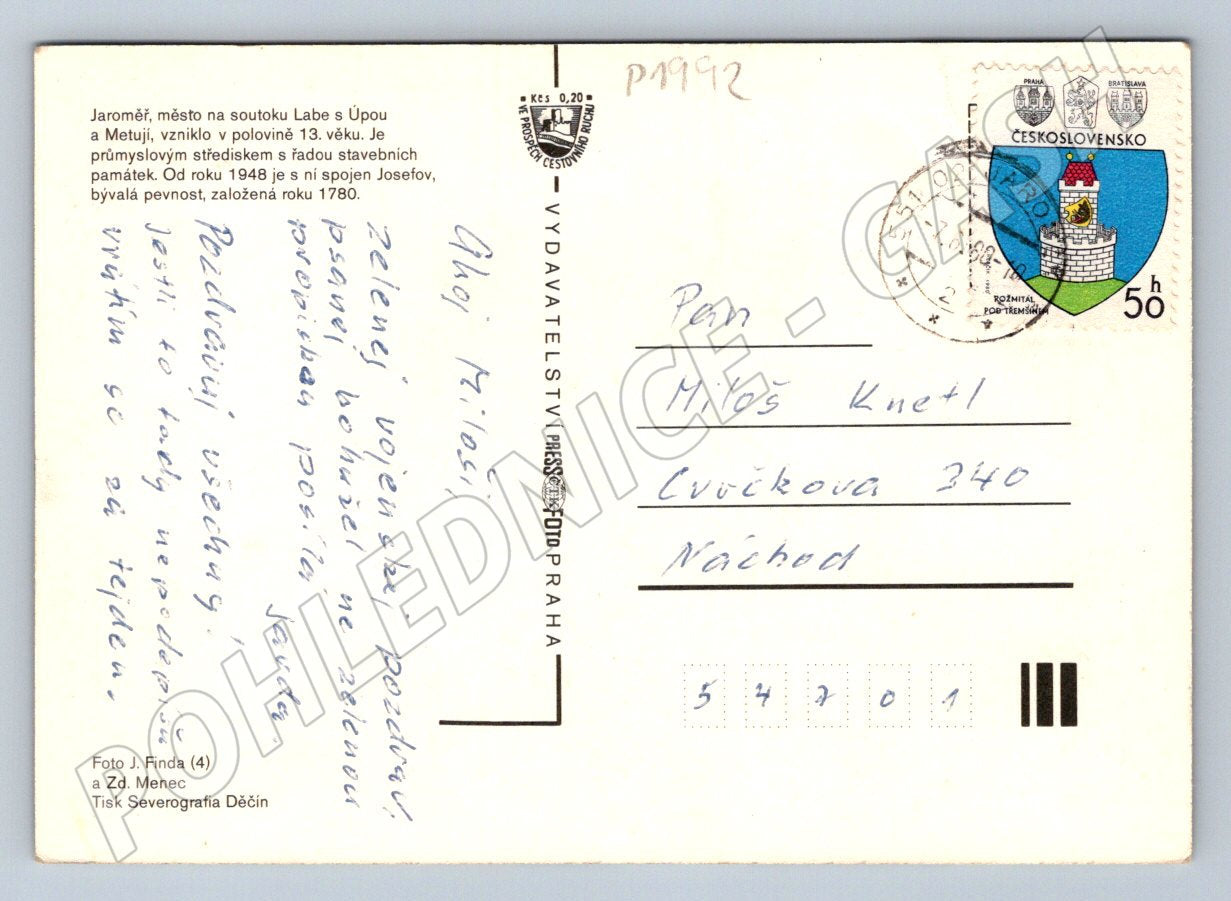 P1992
Jaroměř, město na soutoku Labe s Úpou
a Metují, vzniklo v polovině 13. věku. Je
průmyslovým střediskem s řadou stavebních
památek. Od roku 1948 je s ní spojen Josefov,
bývalá pevnost, založená roku 1780.
Kčs 0,20
VE PROSPĚCH CESTOVNÍHO RUCHU
VYDAVATELSTVÍ PRESSFOTO PRAHA
ČTK
PRAHA
BRATISLAVA
ČESKOSLOVENSKO
ROŽMITÁL
POD TŘEMŠÍNEM
50 h
551 01 JARO
Ahoj Miloši,
zelenej vojenskej pozdrav,
psanej bohužel ne zelenou
propiskou posílá
Jarda.
Pozdravuj všechny.
Jestli to tady nepodepíšu
vrátím se za tejden.
Pan
Miloš Knetl
Cvrčkova 340
Náchod
54701
Foto J. Finda (4)
a Zd. Menec
Tisk Severografia Děčín
POHLEDNICE - CASH